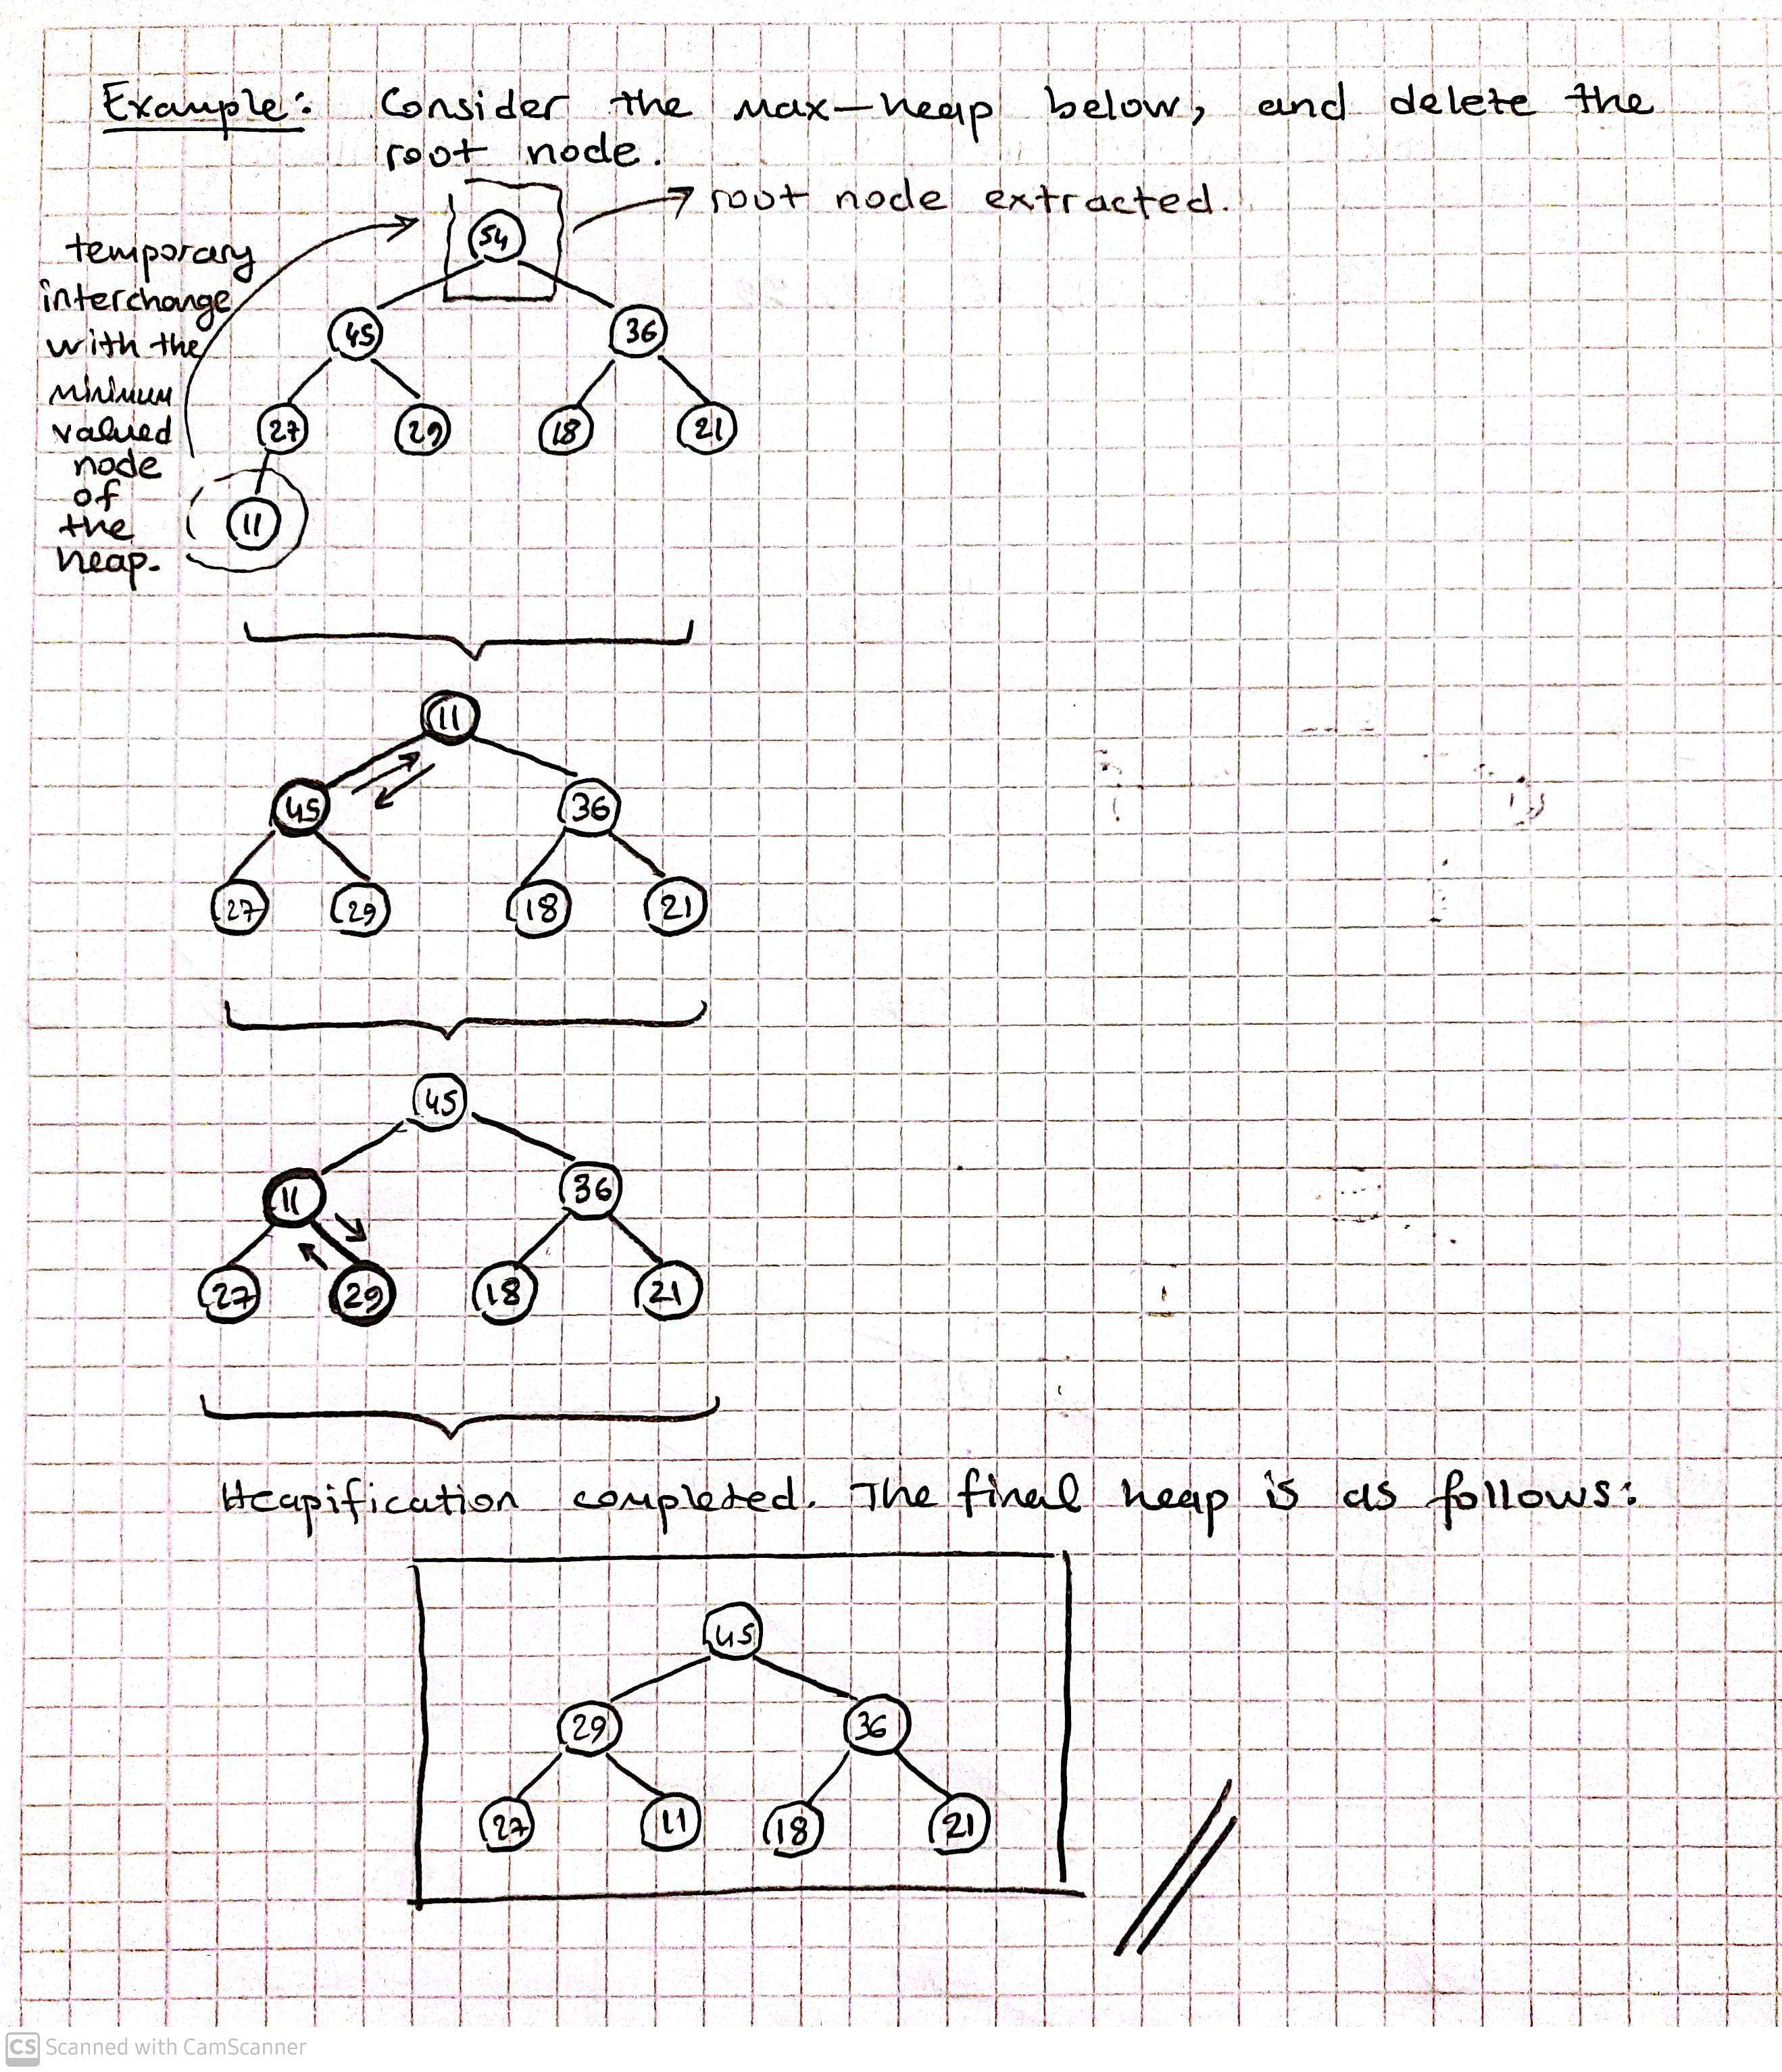 Example: Consider the max-heap below, and delete the
root node.
root node extracted.
temporary
interchange
with the
minimum
valued
node
of
the
heap.
54
45 36
27 29 18 21
11
11
45 36
27 29 18 21
45
11 36
27 29 18 21
Heapification completed. The final heap is as follows:
45
29 36
27 11 18 21
CS Scanned with CamScanner